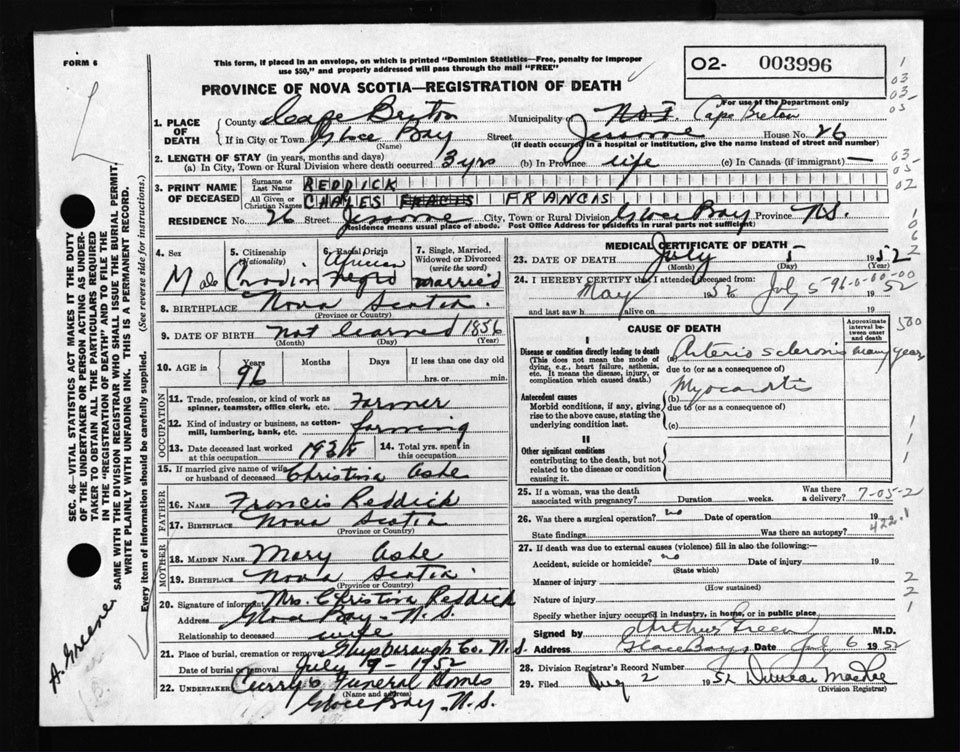 FORM 6
This form, if placed in an envelope, on which is printed "Dominion Statistics—Free, penalty for improper
use $50," and properly addressed will pass through the mail "FREE"
O2- 003996
PROVINCE OF NOVA SCOTIA—REGISTRATION OF DEATH
For use of the Department only
1. PLACE OF DEATH
County Cape Breton Municipality of Cape Breton
If in City or Town Glace Bay Street Jessome House No. 26
(Name) (If death occurred in a hospital or institution, give the name instead of street and number)
2. LENGTH OF STAY (in years, months and days)
(a) In City, Town or Rural Division where death occurred 3 yrs (b) In Province life (c) In Canada (if immigrant) —
3. PRINT NAME OF DECEASED
Surname or Last Name REDDICK
All Given or Christian Names CHALES FRACIS FRANCIS
RESIDENCE No. 26 Street Jessome City, Town or Rural Division Glace Bay Province N.S.
Residence means usual place of abode. Post Office Address for residents in rural parts not sufficient)
4. Sex Male
5. Citizenship (Nationality)
6. Racial Origin Negro
7. Single, Married, Widowed or Divorced (write the word) married
8. BIRTHPLACE Nova Scotia
(Province or Country)
9. DATE OF BIRTH Not learned 1856
(Month) (Day) (Year)
10. AGE in Years 96 Months Days If less than one day old
hrs. or min.
OCCUPATION
11. Trade, profession, or kind of work as spinner, teamster, office clerk, etc. Farmer
12. Kind of industry or business, as cotton-mill, lumbering, bank, etc. farming
13. Date deceased last worked at this occupation
14. Total yrs. spent in this occupation
15. If married give name of wife or husband of deceased Christina Ashe
FATHER
16. NAME Francis Reddick
17. BIRTHPLACE Nova Scotia
(Province or Country)
MOTHER
18. MAIDEN NAME Mary Ashe
19. BIRTHPLACE Nova Scotia
(Province or Country)
20. Signature of informant Mrs. Christina Reddick
Address Glace Bay - N.S.
Relationship to deceased wife
21. Place of burial, cremation or removal Guysborough Co. N.S.
Date of burial or removal July 9 - 1952
22. UNDERTAKER Curry's Funeral Homes
(Name and address)
Glace Bay - N.S.
MEDICAL CERTIFICATE OF DEATH
23. DATE OF DEATH July 5 1952
(Month) (Day) (Year)
24. I HEREBY CERTIFY that I attended deceased from:
May 1952 July 5 1952
96-0-00-00
and last saw h alive on 19
CAUSE OF DEATH
Approximate interval between onset and death
I
Disease or condition directly leading to death
(This does not mean the mode of dying, e.g., heart failure, asthenia, etc. It means the disease, injury, or complication which caused death.)
(a) Arterio sclerosis many years
due to (or as a consequence of)
Antecedent causes
Morbid conditions, if any, giving rise to the above cause, stating the underlying condition last.
(b)
due to (or as a consequence of)
(c)
II
Other significant conditions
contributing to the death, but not related to the disease or condition causing it.
25. If a woman, was the death associated with pregnancy? Duration weeks. Was there a delivery?
7-05-2
26. Was there a surgical operation? no Date of operation 19
State findings Was there an autopsy?
422.1
27. If death was due to external causes (violence) fill in also the following:—
Accident, suicide or homicide? no Date of injury 19
(State which)
Manner of injury
(How sustained)
Nature of injury
Specify whether injury occurred in industry, in home, or in public place
Signed by Arthur Green M.D.
Address Glace Bay Date July 6 1952
28. Division Registrar's Record Number
29. Filed Aug 2 1952 Duncan MacRae
(Division Registrar)
SEC. 46—VITAL STATISTICS ACT MAKES IT THE DUTY
OF THE UNDERTAKER OR PERSON ACTING AS UNDER-
TAKER TO OBTAIN ALL THE PARTICULARS REQUIRED
IN THE "REGISTRATION OF DEATH" AND TO FILE THE
SAME WITH THE DIVISION REGISTRAR WHO SHALL ISSUE THE BURIAL PERMIT.
WRITE PLAINLY WITH UNFADING INK. THIS IS A PERMANENT RECORD.
Every item of information should be carefully supplied. (See reverse side for instructions.)
A. Greene